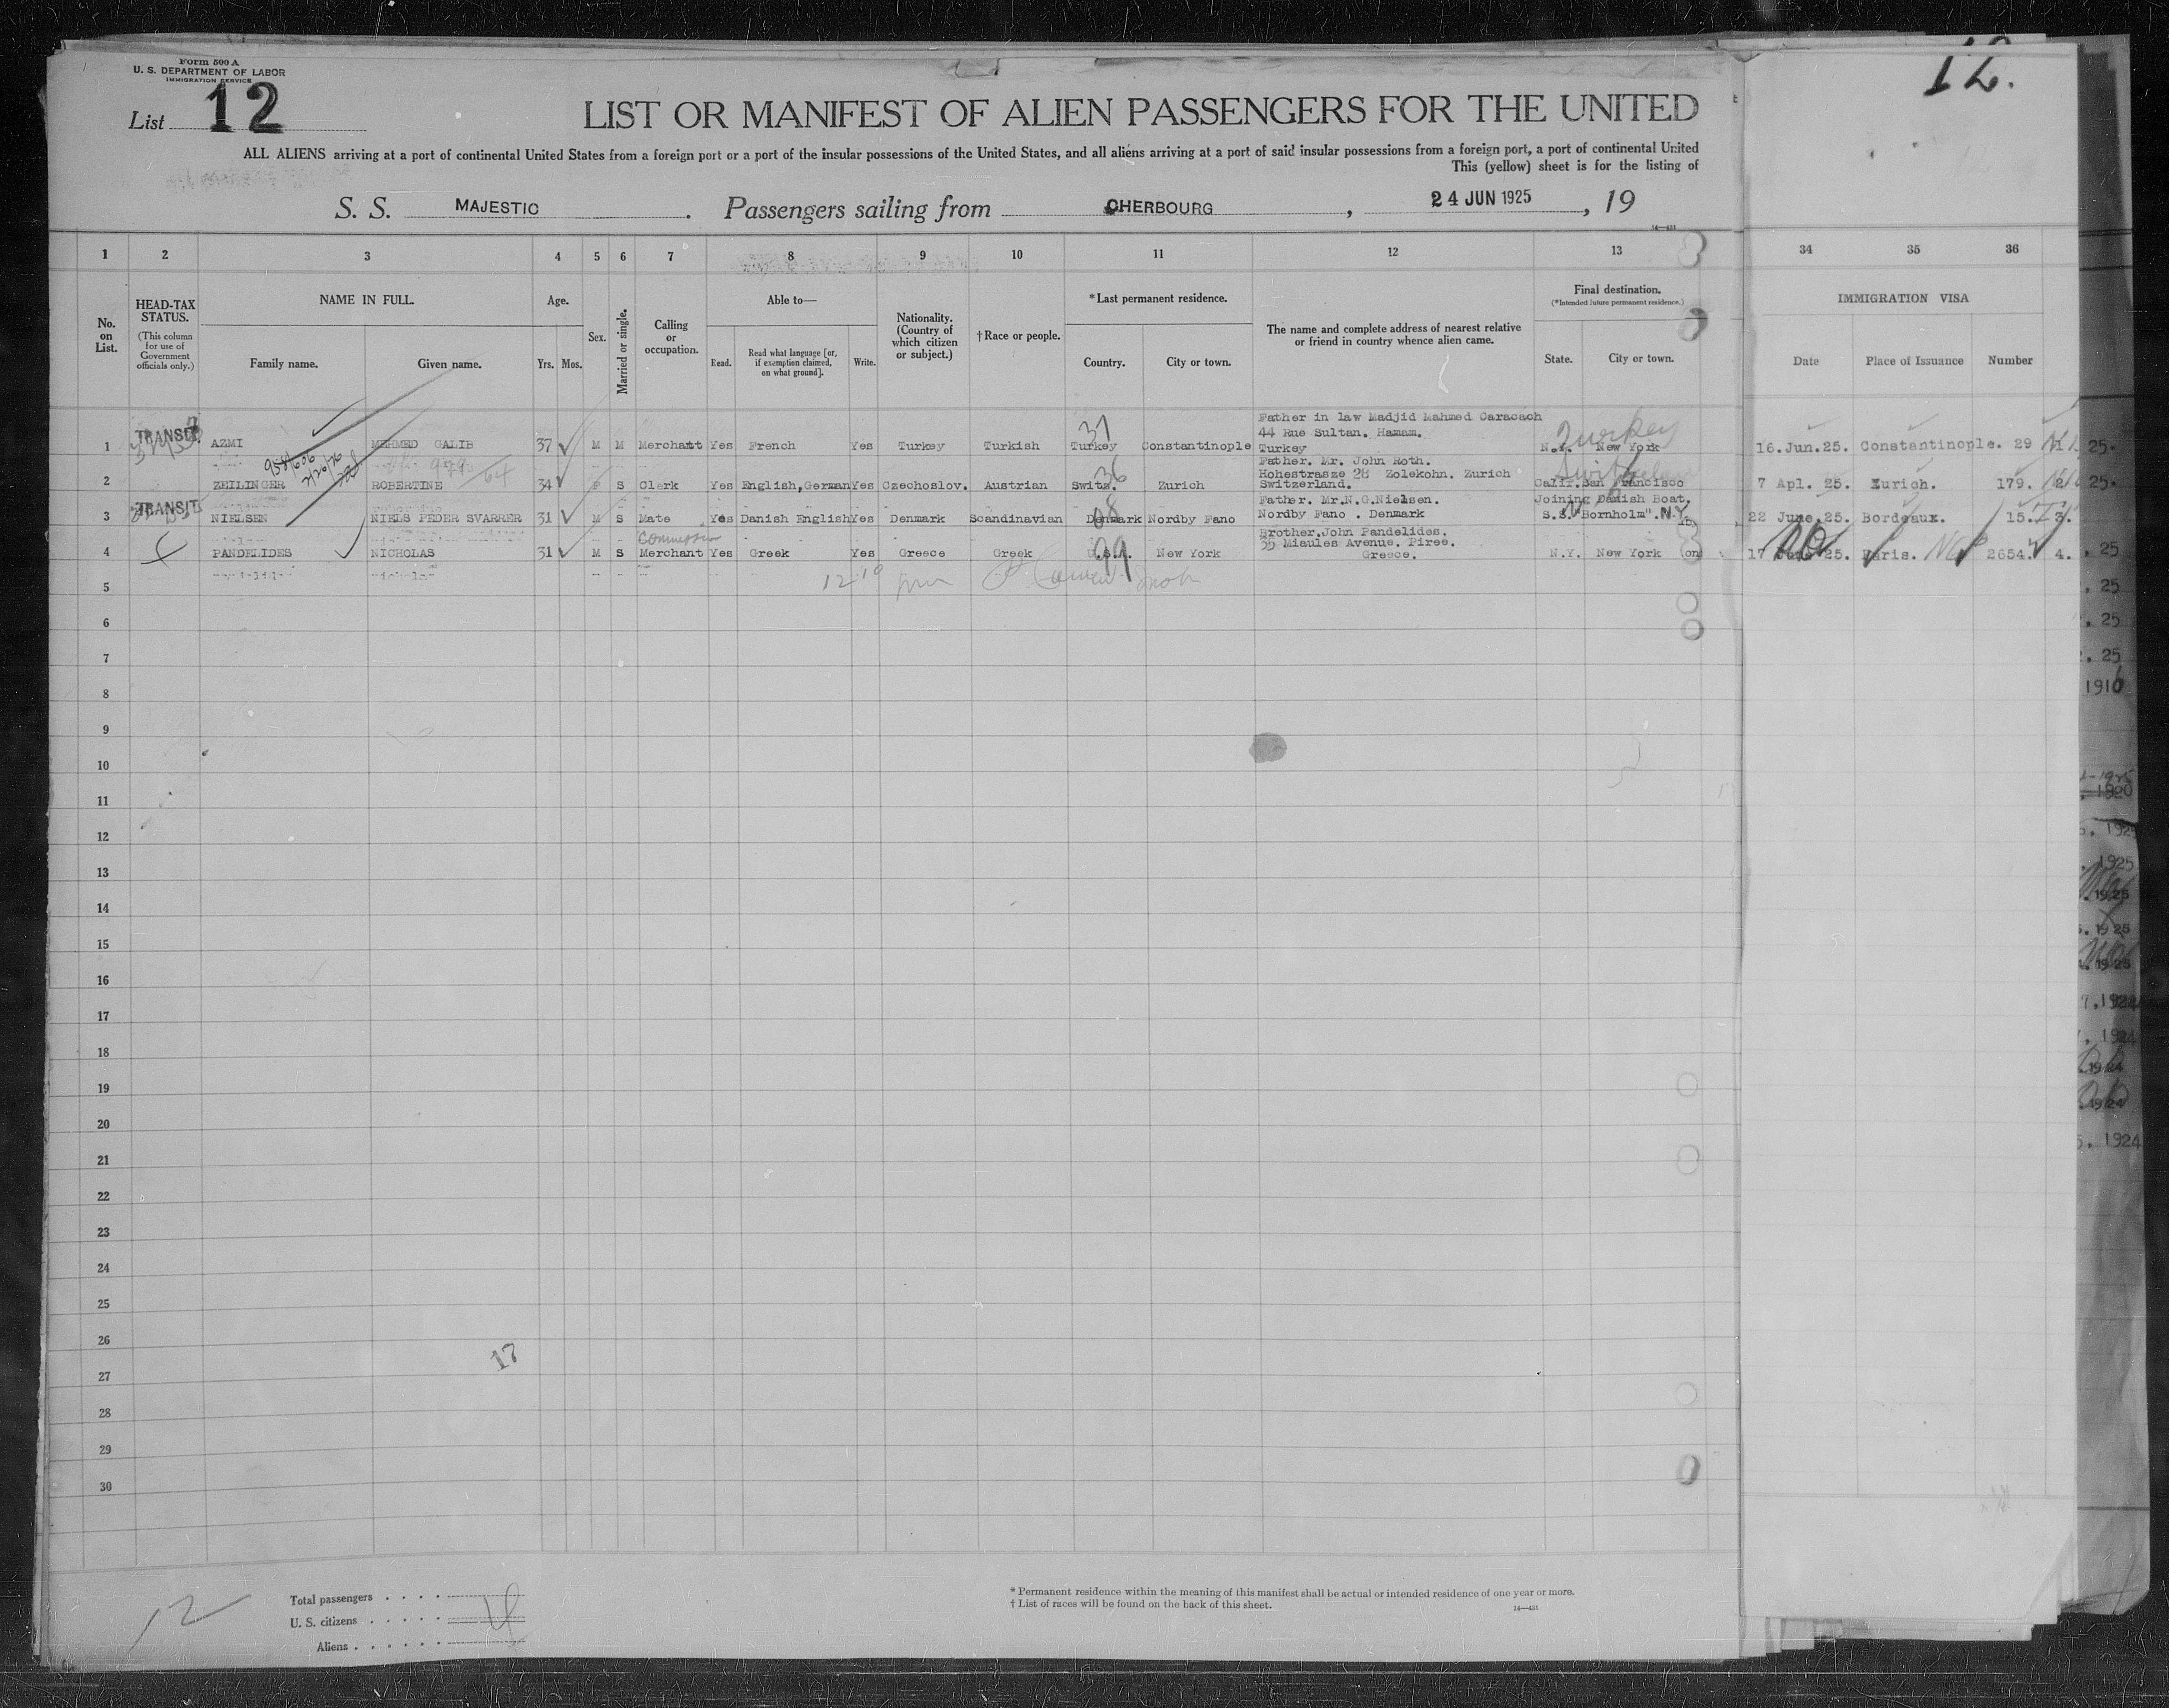 Form 500 A
U. S. DEPARTMENT OF LABOR
IMMIGRATION SERVICE
List 12
12.
LIST OR MANIFEST OF ALIEN PASSENGERS FOR THE UNITED
ALL ALIENS arriving at a port of continental United States from a foreign port or a port of the insular possessions of the United States, and all aliens arriving at a port of said insular possessions from a foreign port, a port of continental United
This (yellow) sheet is for the listing of
S. S. MAJESTIC . Passengers sailing from CHERBOURG , 24 JUN 1925 , 19
14—431
1 2 3 4 5 6 7 8 9 10 11 12 13 34 35 36
No. on List.
HEAD-TAX STATUS.
(This column for use of Government officials only.)
NAME IN FULL.
Family name. Given name.
Age.
Yrs. Mos.
Sex.
Married or single.
Calling or occupation.
Able to—
Read. Read what language [or, if exemption claimed, on what ground]. Write.
Nationality. (Country of which citizen or subject.)
†Race or people.
*Last permanent residence.
Country. City or town.
The name and complete address of nearest relative or friend in country whence alien came.
Final destination.
(*Intended future permanent residence.)
State. City or town.
IMMIGRATION VISA
Date Place of Issuance Number
1 TRANSIT AZMI MEHMED GALIB 37 M M Merchant Yes French Yes Turkey Turkish 37 Turkey Constantinople Father in law Madjid Mahmed Caracach 44 Rue Sultan. Hamam. Turkey N.Y. New York Turkey 16.Jun.25. Constantinople. 29 25.
2 ZEILINGER ROBERTINE 34 F S Clerk Yes English,German Yes Czechoslov. Austrian 36 Switz. Zurich Father. Mr. John Roth. Hohestrasze 28 Zolekohn. Zurich Switzerland. Calif. San Francisco 7 Apl. 25. Zurich. 179. 2 25.
3 TRANSIT NIELSEN NIELS PEDER SVARRER 31 M S Mate Yes Danish English Yes Denmark Scandinavian 08 Denmark Nordby Fano Father. Mr.N.G.Nielsen. Nordby Fano . Denmark Joining Danish Boat. S.S. "Bornholm". N.Y. 22 June.25. Bordeaux. 15. 3.
4 PANDELIDES NICHOLAS 31 M S Commission Merchant Yes Greek Yes Greece Greek 99 U.S.A. New York Brother.John Pandelides. 35 Miaules Avenue. Piree. Greece. N.Y. New York 17 25. Paris. 2654. 4. , 25
5 , 25
6 . 25
7 . 25
8 1916
9
10
11 1920
12 1925
13 1925
14 1925
15 1925
16 1925
17 1924
18 1924
19 1924
20 1924
21 1924
22
23
24
25
26
17
27
28
29
30
12
Total passengers . . . .
U. S. citizens . . . . .
Aliens . . . . . .
* Permanent residence within the meaning of this manifest shall be actual or intended residence of one year or more.
† List of races will be found on the back of this sheet.
14—431